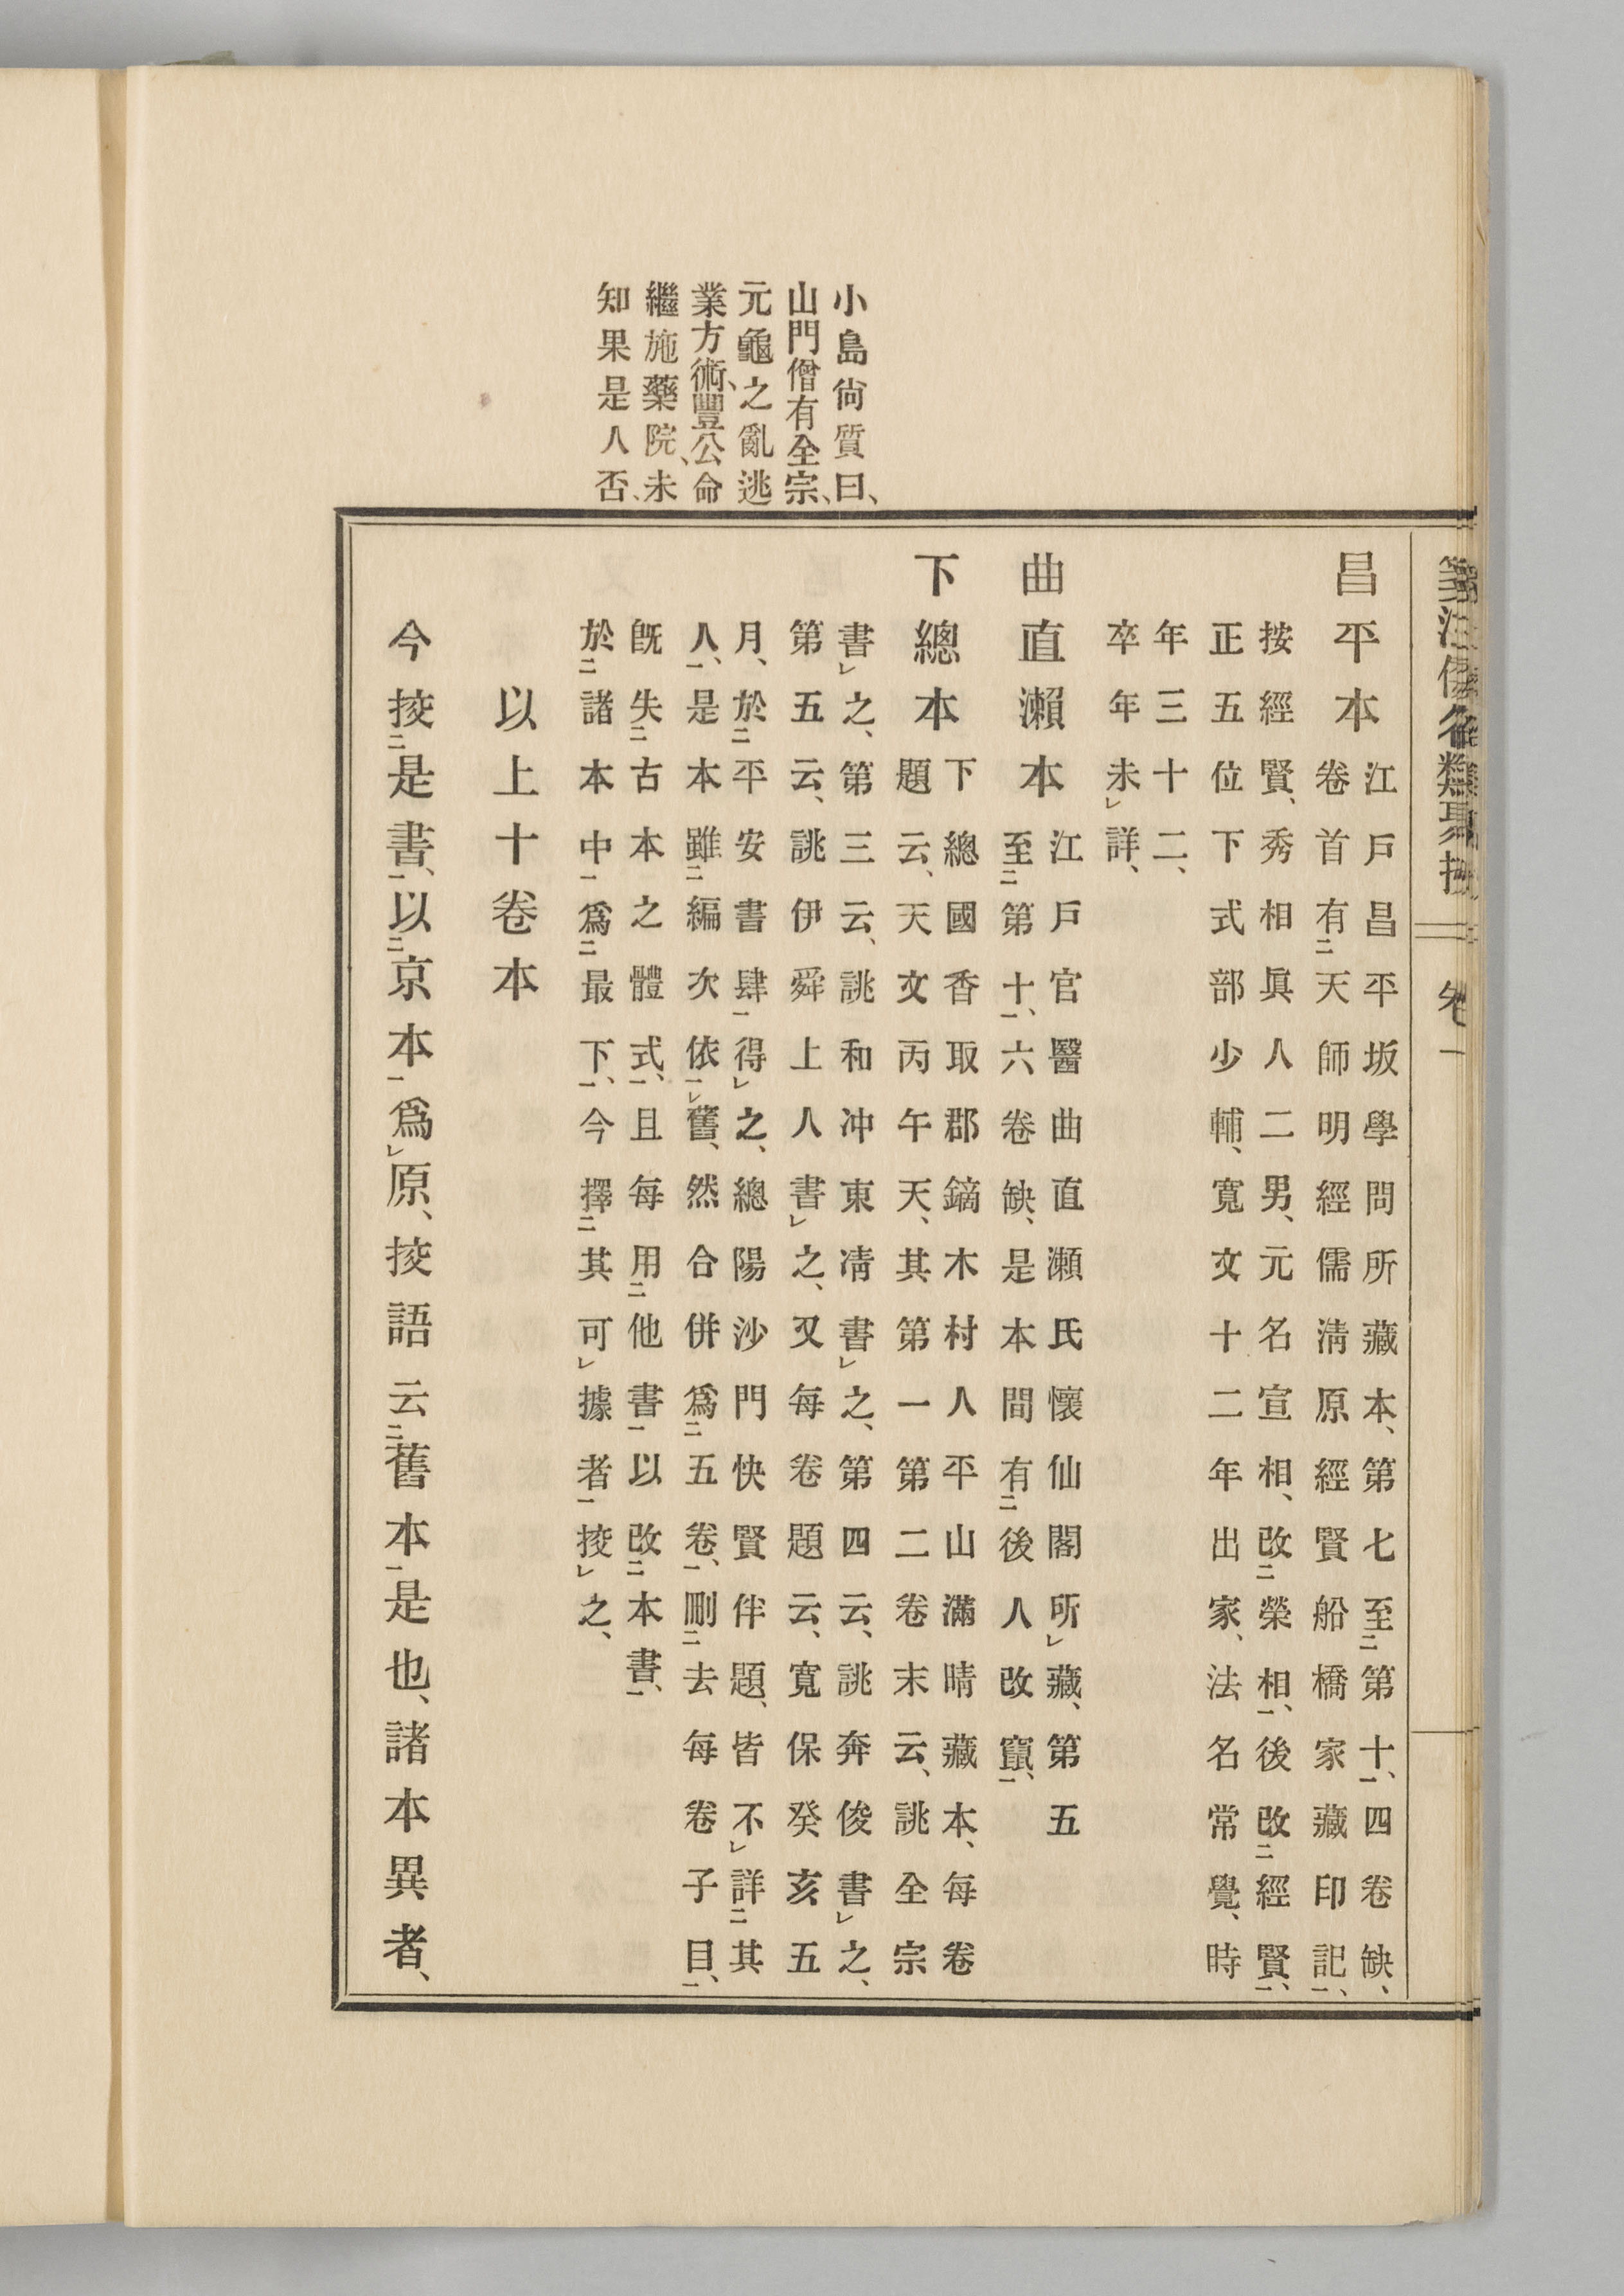 小島尙質曰、
山門僧有全宗、
元龜之亂逃
業方術、豐公命
繼施藥院、未
知果是人否、
箋注倭名類聚抄 卷一
昌平本
江戶昌平坂學問所藏本、第七至㆓第十㆒、四卷缺、
卷首有㆓天師明經儒淸原經賢船橋家藏印記㆒、
按經賢、秀相眞人二男、元名宣相、改㆓榮相㆒、後改㆓經賢㆒、
正五位下式部少輔、寬文十二年出家、法名常覺、時
年三十二、
卒年未㆑詳、
曲直瀨本
江戶官醫曲直瀨氏懷仙閣所㆑藏、第五
至㆓第十㆒、六卷缺、是本間有㆓後人改竄㆒、
下總本
下總國香取郡鏑木村人平山滿晴藏本、每卷
題云、天文丙午天、其第一第二卷末云、誂全宗
書㆑之、第三云、誂和冲東淸書㆑之、第四云、誂奔俊書㆑之、
第五云、誂伊舜上人書㆑之、又每卷題云、寬保癸亥五
月、於㆓平安書肆㆒得㆑之、總陽沙門快賢伴題、皆不㆑詳㆓其
人㆒、是本雖㆓編次依㆒㆑舊、然合併爲㆓五卷㆒、刪㆓去每卷子目㆒、
旣失㆓古本之體式㆒、且每用㆓他書㆒以改㆓本書㆒、
於㆓諸本中㆒爲㆓最下㆒、今擇㆓其可㆑據者㆒挍㆑之、
以上十卷本
今挍㆓是書㆒、以㆓京本㆒爲㆑原、挍語云㆓舊本㆒是也、諸本異者、